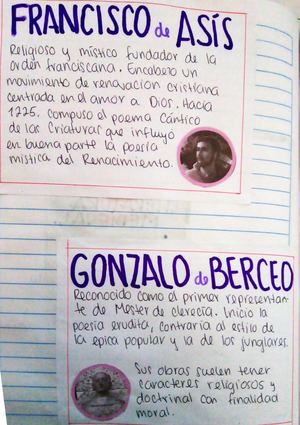 FRANCISCO de ASÍS
Religioso y místico fundador de la
orden franciscana. Encabezo un
movimiento de renovacion cristiana
centrada en el amor a Dios. Hacia
1225. compuso el poema Cántico
de las Criaturas que influyó
en buena parte la poesía
mistica del Renacimiento.
GONZALO de BERCEO
Reconocido como el primer representan-
te de Mester de clerecía. Inicio la
poesía erudita, contraria al estilo de
la epica popular y la de los juglares.
Sus obras suelen tener
caracteres religiosos y
doctrinal con finalidad
moral.